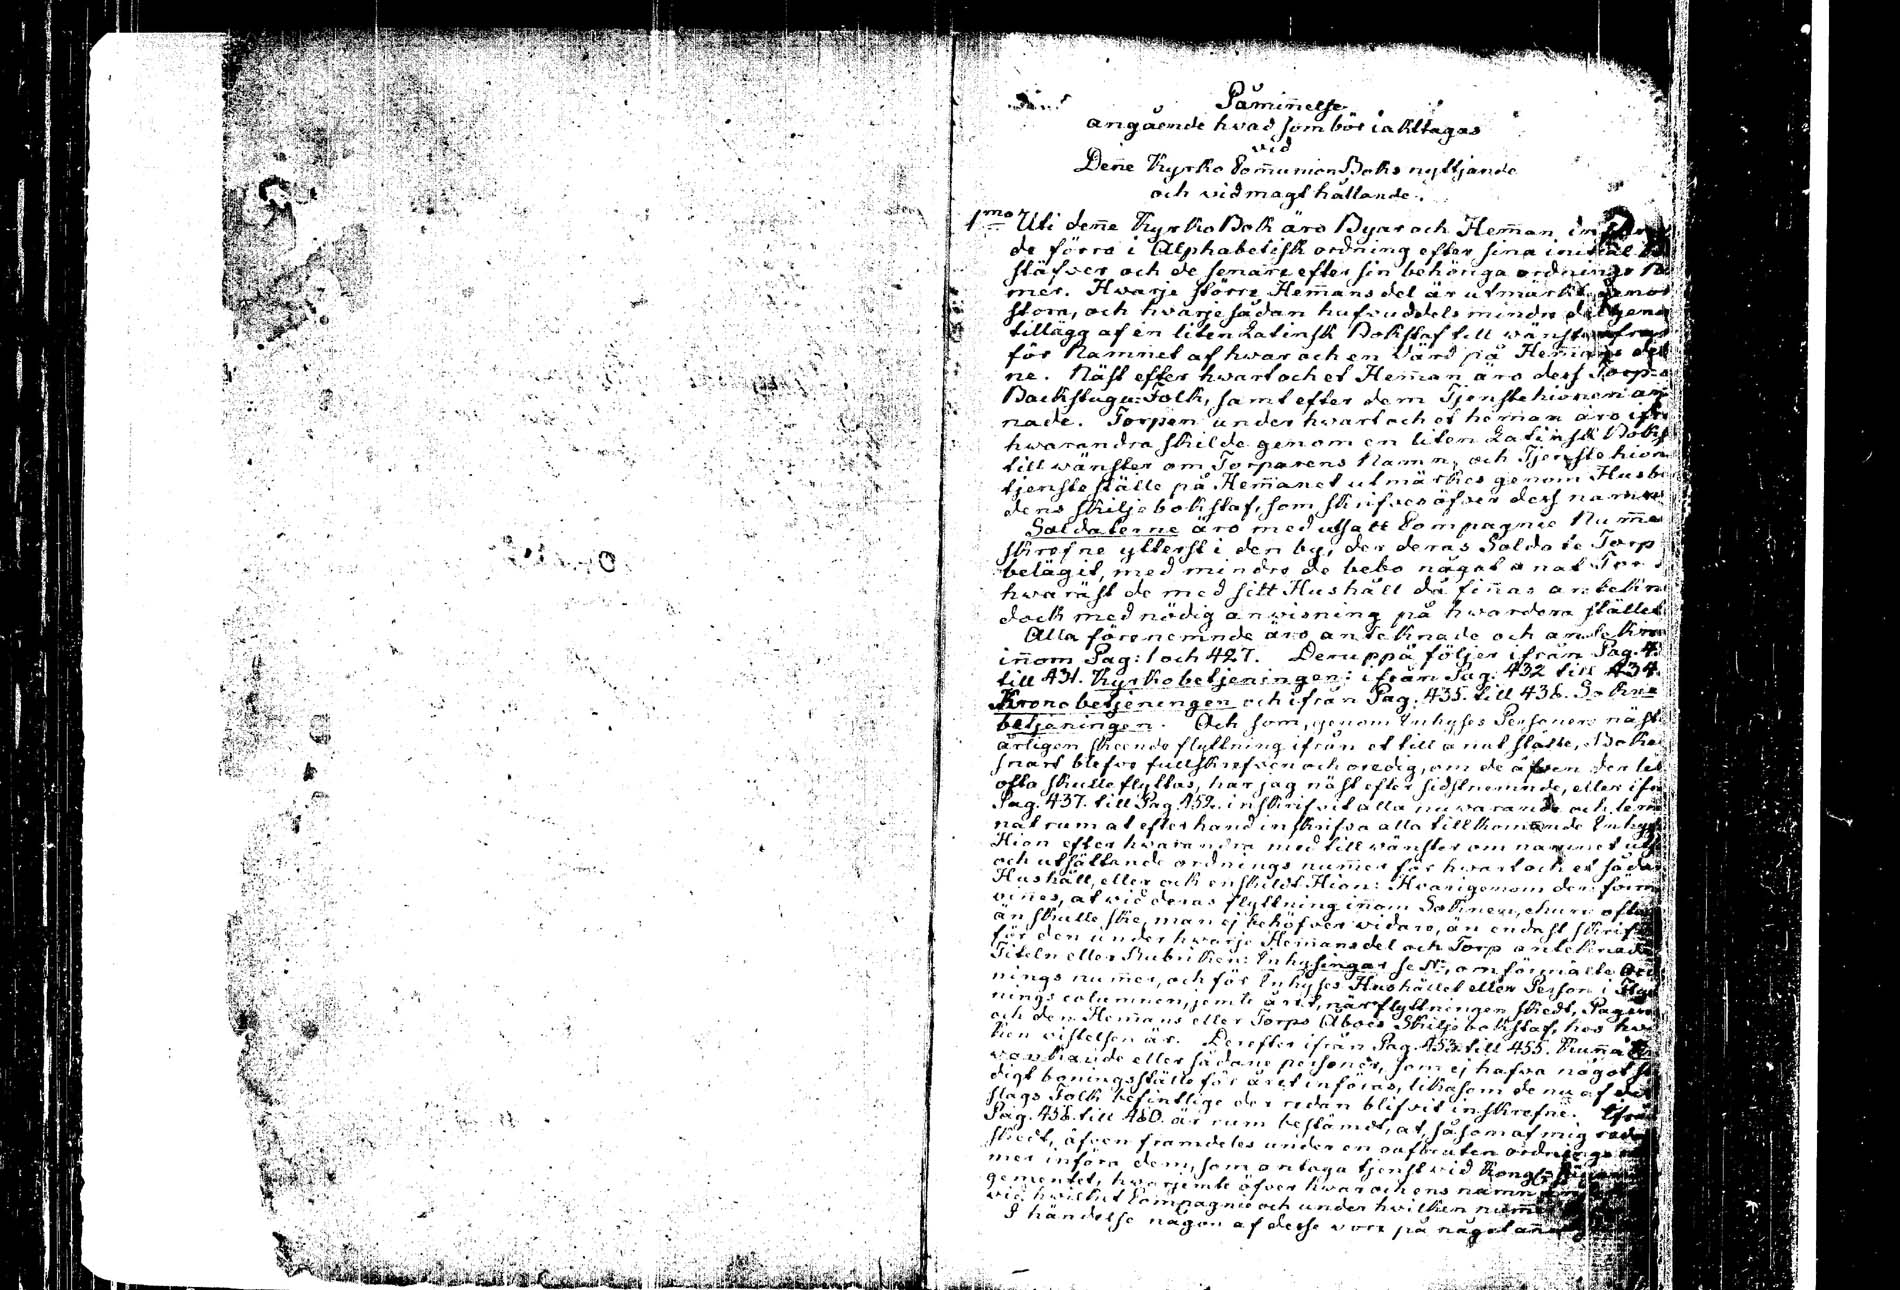 Påmiñelse
angående hvad som bör iakttagas
vid
Deñe Kyrko Com̃union Boks nyttjande
och vidmagthållande.
1mo Uti deñe Kyrko Bok äro Byar och Hem̃an
de förra i Alphabetisk ordning efter sina initial
stäfver och de senare efter sin behöriga ordnings
mer. Hvarje större Hem̃ansdel är utmärkt genom
stora, och hvarje sådan hufvuddels mindre del genom
tillägg af en liten Latinsk Bokstaf till wänster
för Namnet af hwar och en Värd på Hem̃ans
ne. Näst efter hwart och et Hem̃an äro dess Torp
Backstugu-Folk, samt efter dem Tjenstehionen
nade. Torpen under hwart och et heman äro ifrå
hwarandra skilde genom en liten Latinsk Bokst
till wänster om Torparens Namn, och Tjenstehion
tjenste ställe på Hem̃anet utmärkes genom Husbo
dens skiljebokstaf, som skrifves öfver dess namn
Soldaterne äro med utsatt Compagnie Num̃er
skrefne ytterst i den by, der deras Soldate Torp
belägit, med mindre de bebo något anat Torp
hwaräst de med sitt Hushåll då fiñas antekn
dock med nödig anvisning på hwardera stället
Alla förenemnde äro anteknade och
iñom Pag: 1 och 427. Deruppå följer ifrån Pag. 4
till 431. Kyrkobetjeningen: ifrån Pag. 432 till 434.
Kronobetjeningen och ifrån Pag. 435. till 436. Sokne
betjeningen. Och som, genom Inhyses Personers näst
årligen skeende flyttning ifrån et till anat ställe, Boken
snart blefve fullskrefven och oredig, om de äfven der
ofta skulle flyttas, har jag näst efter sidstnemnde, eller ifr
Pag. 437. till Pag 452. inskrifvit alla nuvarande och lem
nat rum at efterhand inskrifva alla tillkom̃ande Inhyses
Hion efter hwarandra med till wänster om namnet
och utsättande ordnings num̃er för hwart och et sådan
Hushåll, eller ock enskildt Hion: Hvarigenom den förm
viñes, at vid deras flyttning iñom Soknen, ehuru ofta
än skulle ske, man ej behöfver vidare, än endast skrif
för den under hwarje Hem̃ansdel och Torp anteknade
Titeln eller Rubriken: Inhysingar se No, omförmälte Ord
nings num̃er, och för Inhyses Hushållet eller Person i Flytt
nings columnen, jemte året, när flyttningen skedt, Pagina
och den Hem̃ans eller Torps Åboes Skiljebokstaf, hos hvil
ken vistelsen är. Derefter ifrån Pag. 453 till 455. Kuña
vankande eller sådane personer, som ej hafva något
digt boningsställe för året införas, likasom de nu af det
slags Folk befintlige der redan blifvit inskrefne.
Pag. 456. till 460. är rum bestämdt, at, såsom af mig reda
skedt, äfven framdeles under en oafbruten ordnings
mer införa dem, som antaga tjenst vid Kongl.
gementet, hwarjemte öfver hwar och ens namn
vid hvilket Compagnie och under hvilken num̃
I händelse någon af desse vore på något añ